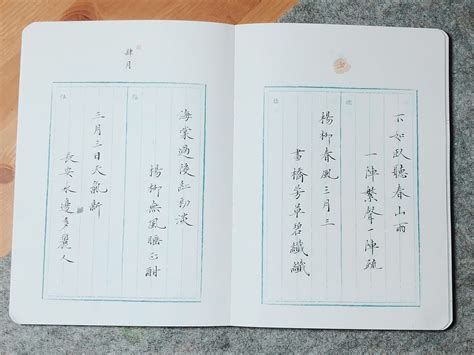 不如臥聽春山雨
一陣繁聲一陣疏
楊柳春風三月三
畫橋芳草碧纖纖
肆月
海棠過後紅初淡
楊柳無風睡正酣
三月三日天氣新
長安水邊多麗人